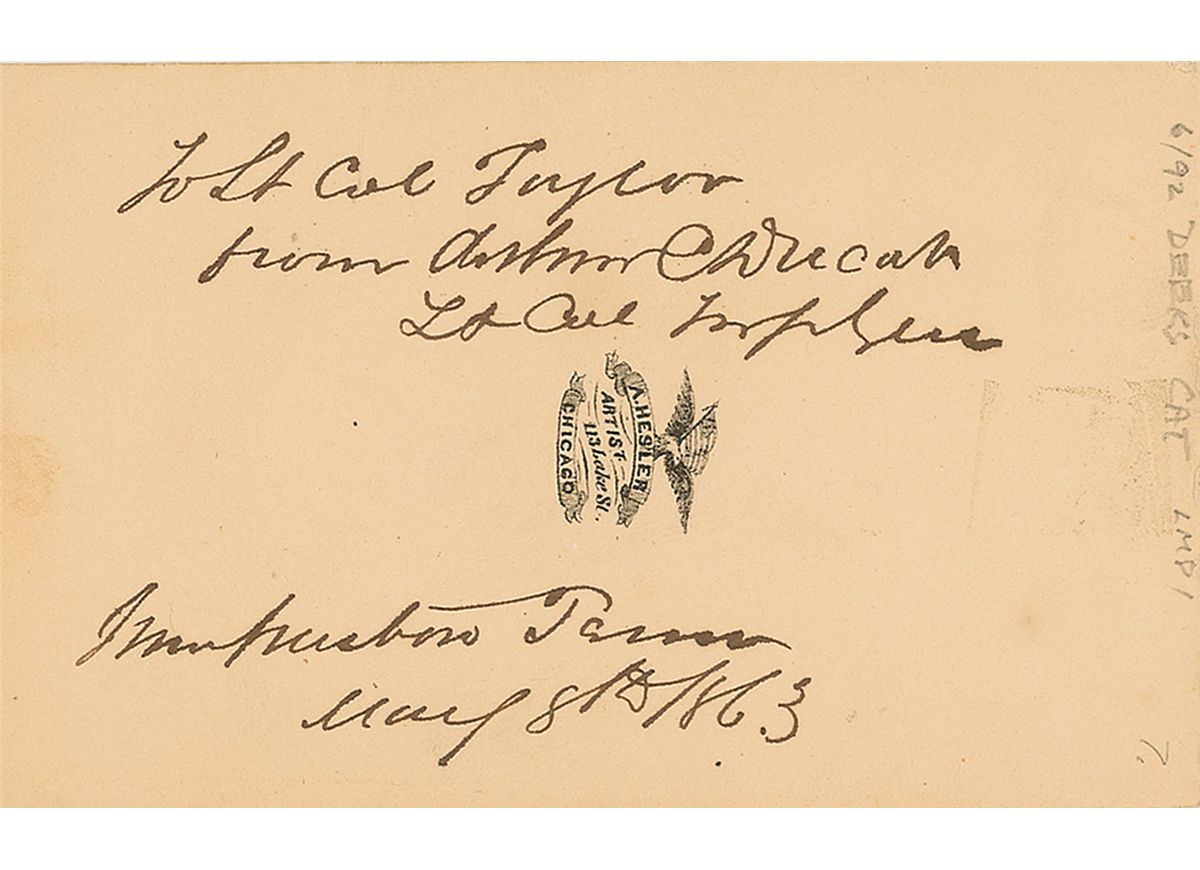 To Lt Col Taylor
from Arthur C Ducat
Lt Col Insp Gen
A. HESLER
ARTIST
113 Lake St.,
CHICAGO
Murfreesboro Tenn
May 8th 1863
6/92 DEEKS CAT LMP1
7.